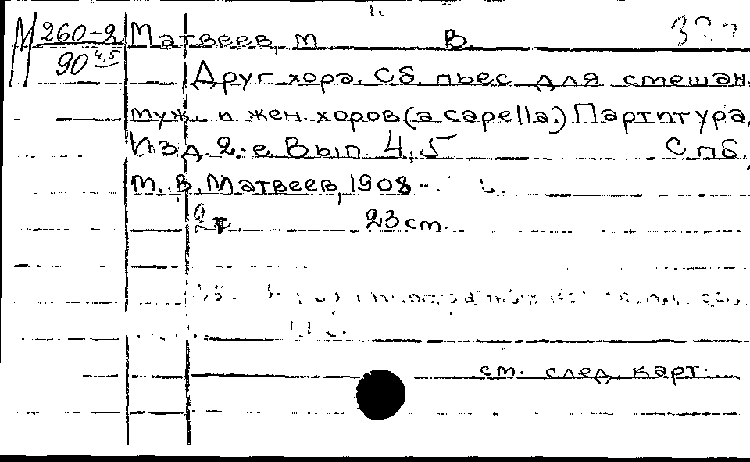 М 260-2 Матвеев, М В.
90 4,5 Друг хора. Сб. пьес для смешан.
муж. и жен. хоров (a capella.) Партитура.
Изд. 2-е. Вып. 4, 5 Спб.,
М. В. Матвеев, 1908
2 т. 23 см.
см. след. карт.